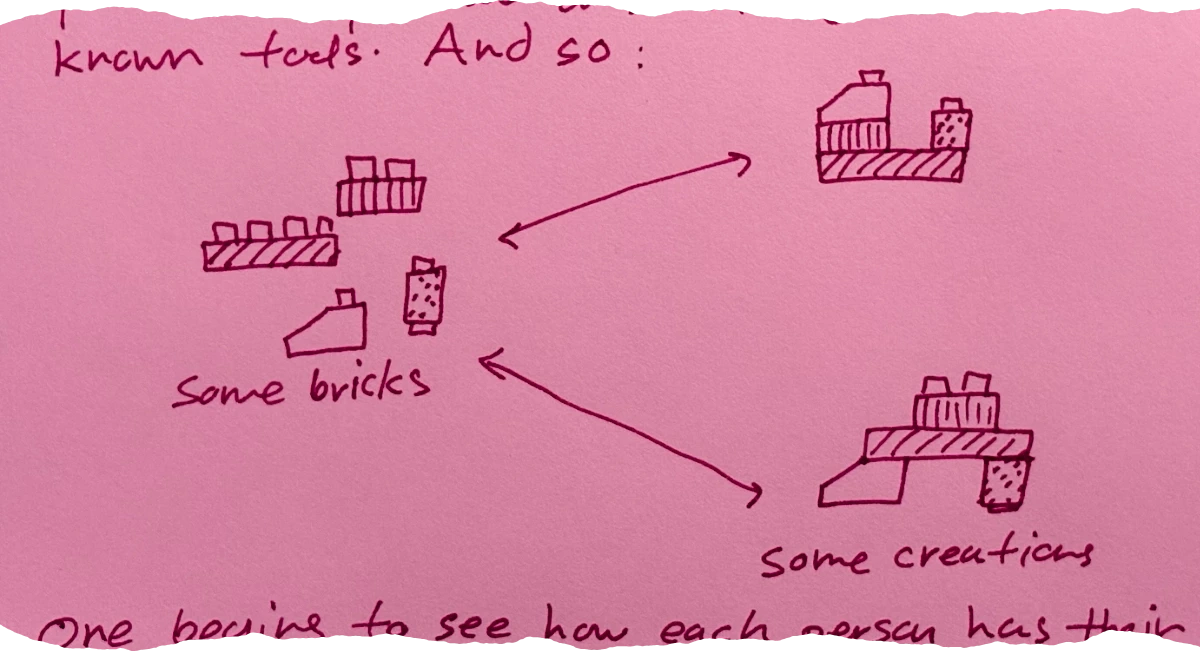 known tools. And so:
Some bricks
Some creations
One begins to see how each person has their